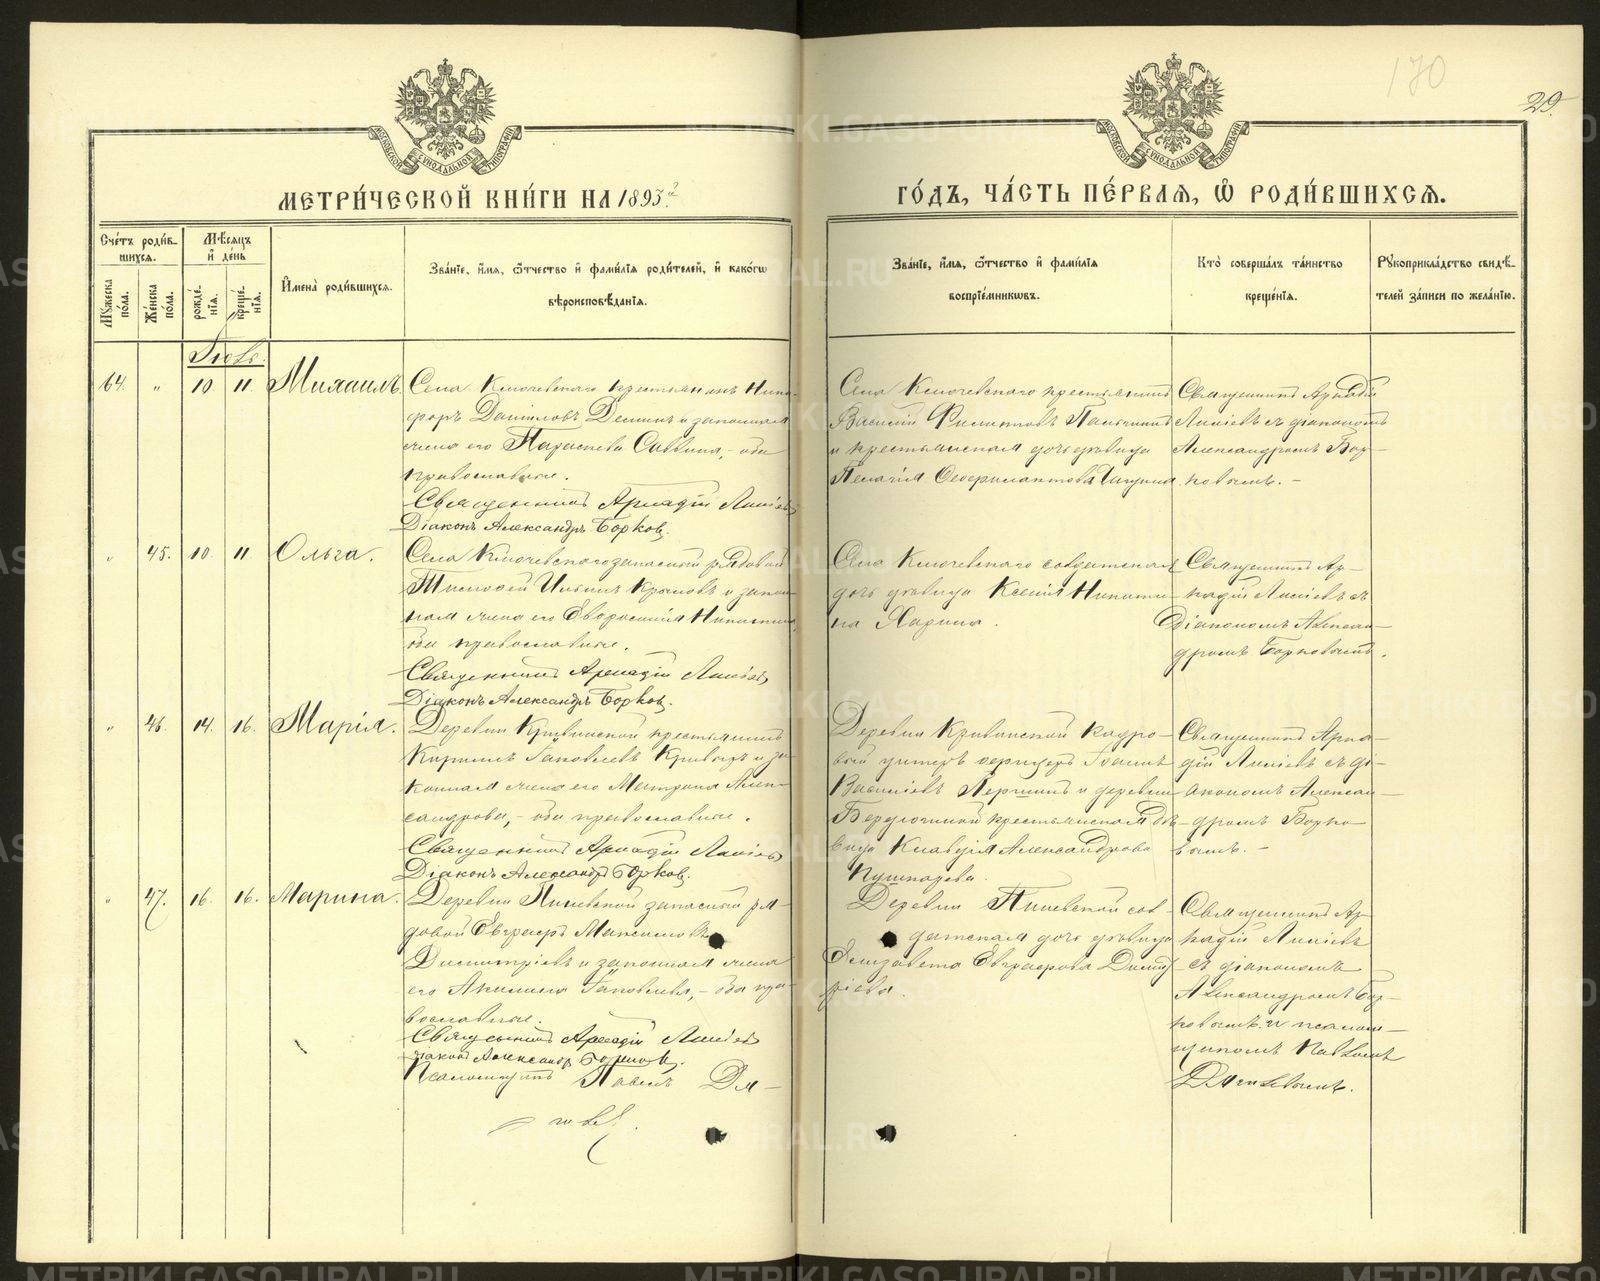 170
29.
МОСКОВСКОЙ СѴНОДАЛЬНОЙ ТИПОГРАФІИ
МОСКОВСКОЙ СѴНОДАЛЬНОЙ ТИПОГРАФІИ
МЕТРИ́ЧЕСКОЙ КНИ́ГИ НА 1893
ГО́ДЪ, ЧА́СТЬ ПЕ́РВАѦ, Ѡ҆ РОДИ́ВШИХСѦ.
Счетъ роди́в-
шихсѧ.
Мꙋжеска по́ла.
Же́нска по́ла.
Мѣ́сѧцъ
и҆ де́нь
рожде́нїѧ.
креще́нїѧ.
И҆мена̀ роди́вшихсѧ.
Зва́нїе, и҆́мѧ, ѻ҆́тчество и҆ фами́лїѧ роди́телей, и҆ како́гѡ
вѣроисповѣ́данїѧ.
Зва́нїе, и҆́мѧ, ѻ҆́тчество и҆ фами́лїѧ
воспрїе́мникѡвъ.
Кто̀ соверша́лъ та́инство
креще́нїѧ.
Рꙋкоприкла́дство свидѣ́-
телей за́писи по жела́нїю.
Іюль.
64. " 10 11 Михаилъ.
Села Ключевскаго крестьянинъ Ники-
форъ Даніиловъ Деминъ и законная
жена его Параскева Саввина, - оба
православные.
Священникъ Аркадій
Діаконъ Александръ Борковъ.
Села Ключевскаго крестьянинъ
Василій Филиповъ
и крестьянская дочь девица
Пелагія
Священникъ Аркадій
съ діакономъ
Александромъ Бор-
ковымъ. -
" 45. 10. 11 Ольга.
Села Ключевского запасный рядовой
Тимофей Ильинъ Крыловъ и закон-
ная жена его Евфросинія Никитина,
оба православные.
Священникъ Аркадій
Діаконъ Александръ Борковъ.
Села Ключевскаго солдатская
дочь девица Ксенія Никити-
на Ларина.
Священникъ Ар-
кадій съ
Діакономъ Алексан-
дромъ Борковымъ.
" 46. 14. 16. Марія.
Деревни Кривинской крестьянинъ
Кириллъ Іаковлевъ и за-
конная жена его Матрона Алек-
сандрова, - оба православные.
Священникъ Аркадій
Діаконъ Александръ Борковъ.
Деревни Кривинской кадро-
вый унтеръ офицеръ Іоаннъ
Васильевъ Першинъ и деревни
крестьянская дѣ-
вица Клавдія Александрова
Пушкарева.
Священникъ Арка-
дій съ ді-
акономъ Алексан-
дромъ Борко-
вымъ. -
" 47. 16. 16. Марина.
Деревни запасный ря-
довой Евграфъ Максимовъ
Димитріевъ и законная жена
его Акилина Іаковлева, - оба пра-
вославные.
Священникъ Аркадій
Діаконъ Александръ Борковъ.
Псаломщикъ Павелъ Дя-
Деревни сол-
датская дочь девица
Елизавета Евграфова Димит-
ріева.
Священникъ Ар-
кадій
съ діакономъ
Александромъ Бор-
ковымъ и псалом-
щикомъ Павломъ
METRIKI.GASO-URAL.RU